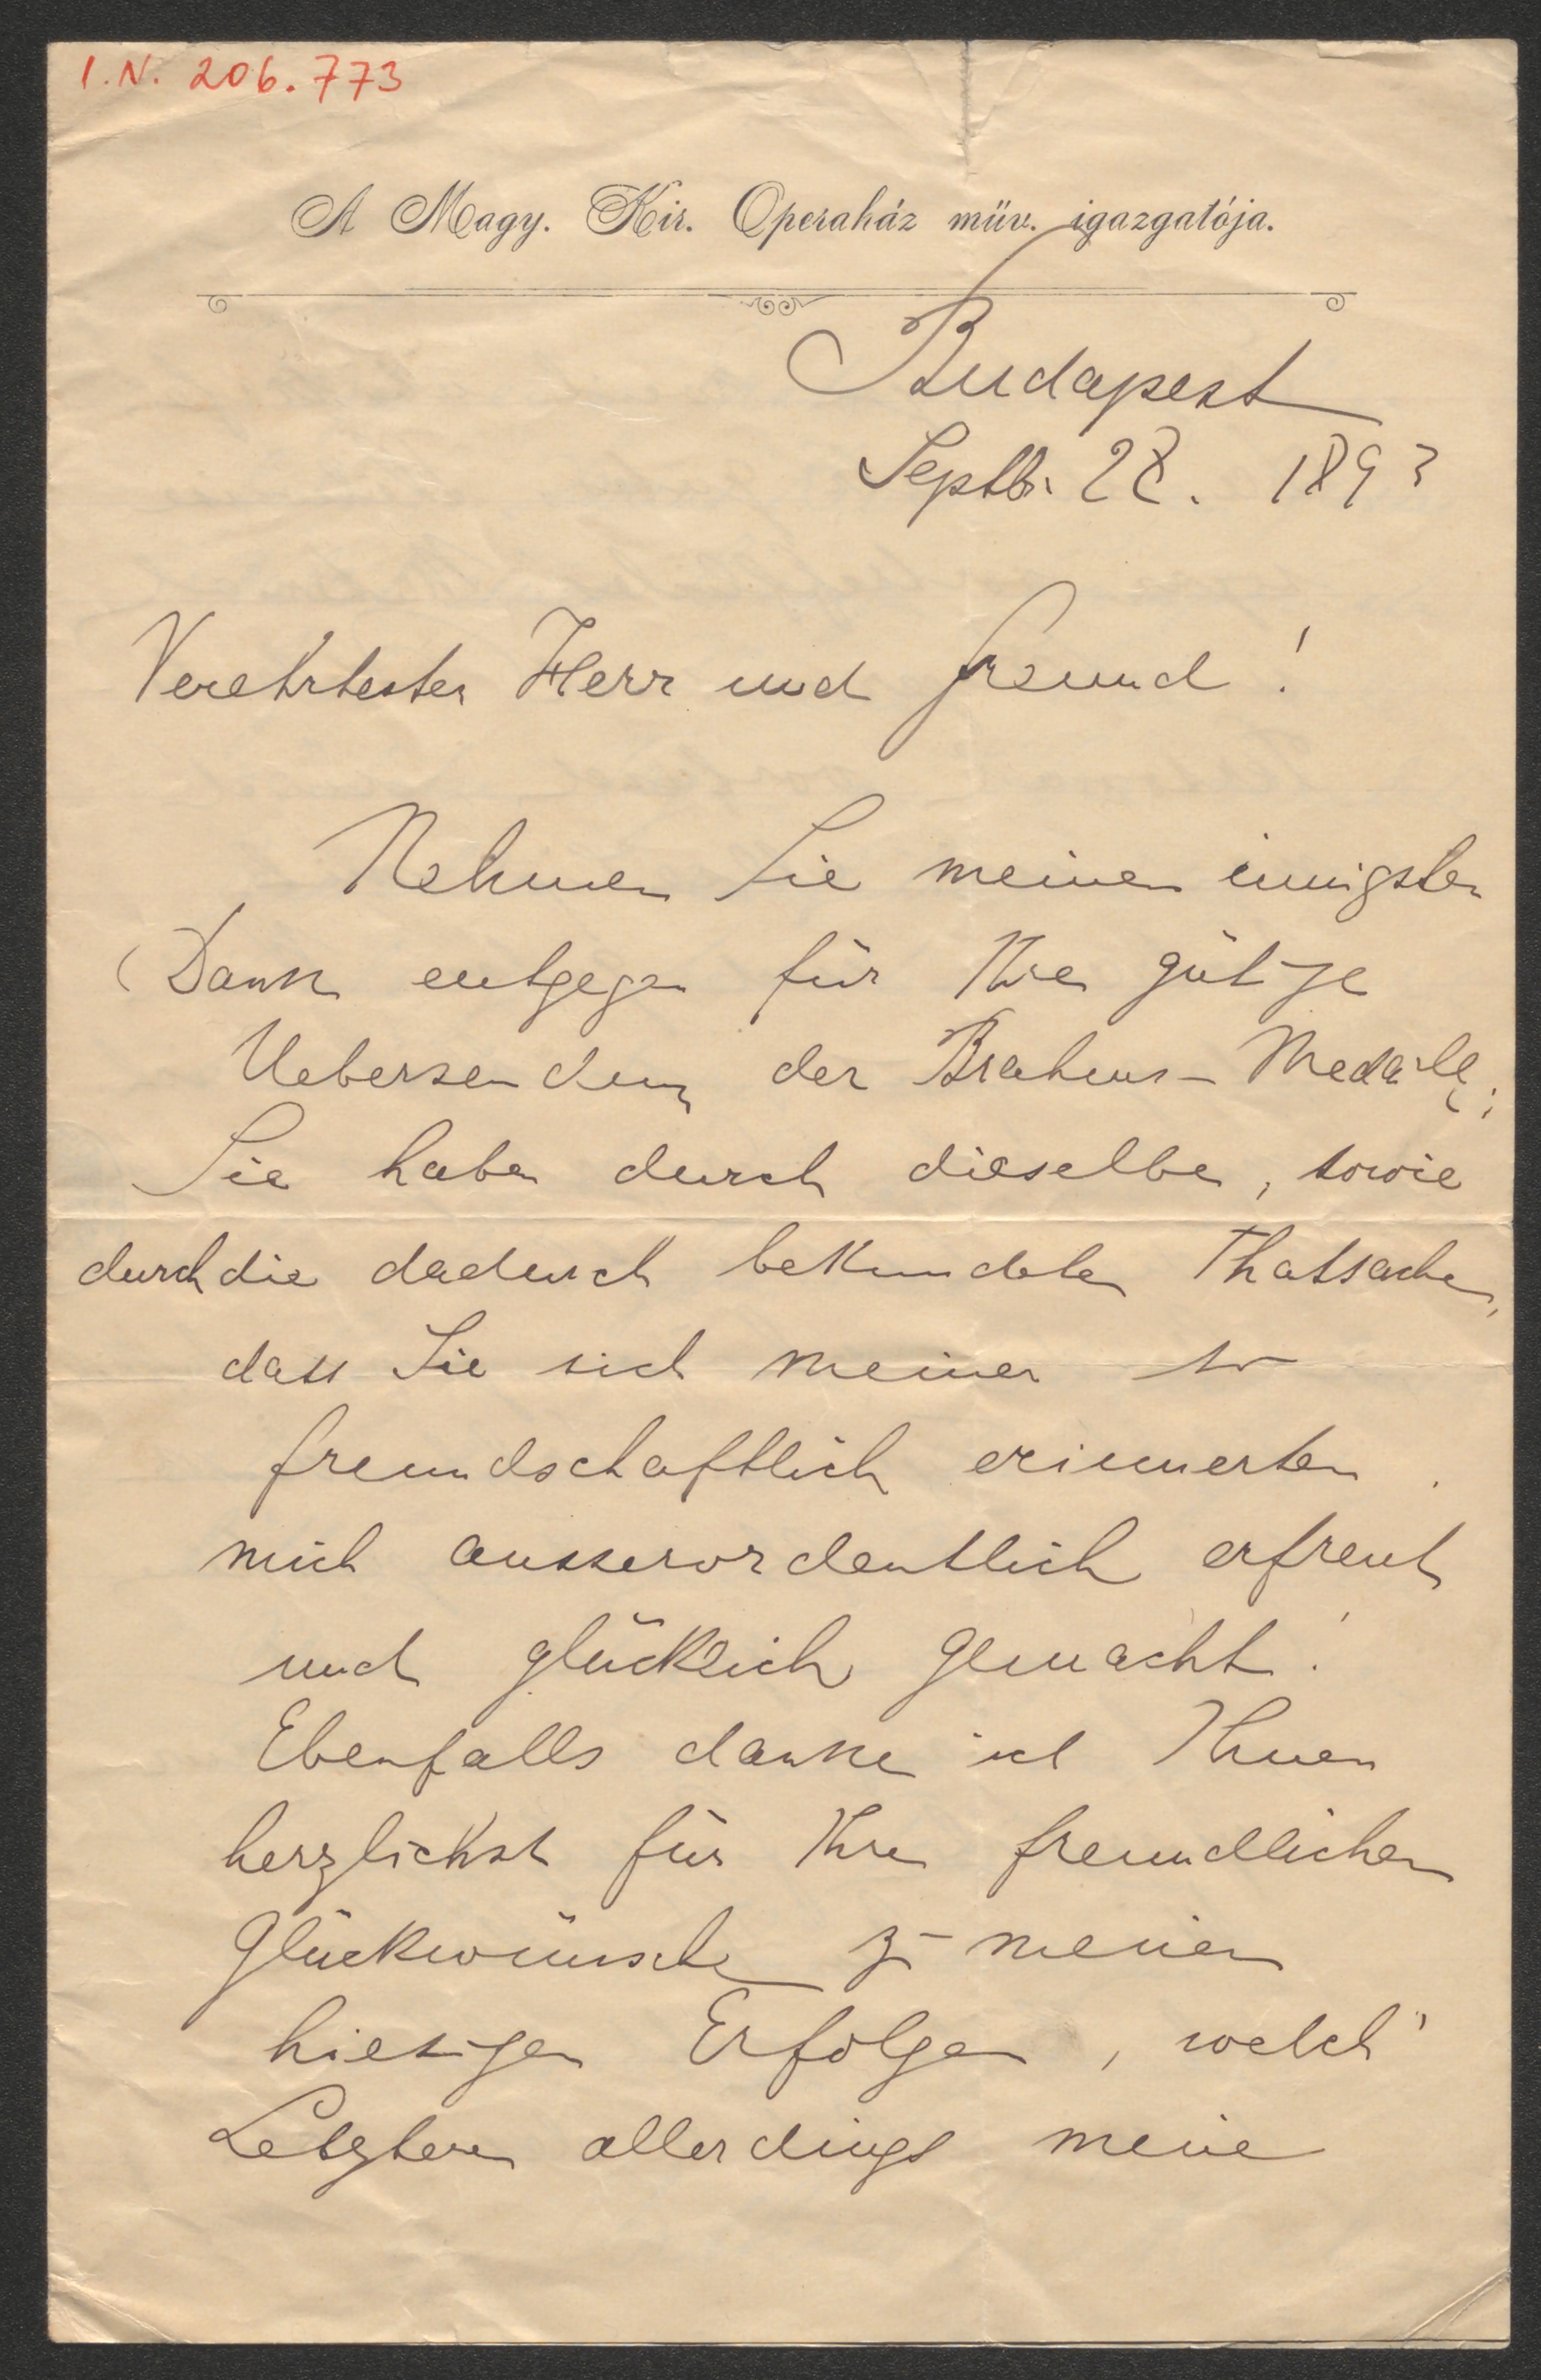 I.N. 206.773
A Magy. Kir. Operaház müv. igazgatója.
Budapest
Septb. 28. 1893
Verehrtester Herr und Freund!
Nehmen Sie meinen innigsten
Dank entgegen für Ihre gütige
Uebersendung der Brahms-Medaille;
Sie haben durch dieselbe, sowie
durch die dadurch bekundete Thatsache,
dass Sie sich meiner so
freundschaftlich erinnerten
mich ausserordentlich erfreut
und glücklich gemacht!
Ebenfalls danke ich Ihnen
herzlichst für Ihre freundlichen
Glückwünsche zu meinen
hiesigen Erfolgen, welch'
Letztere allerdings meine